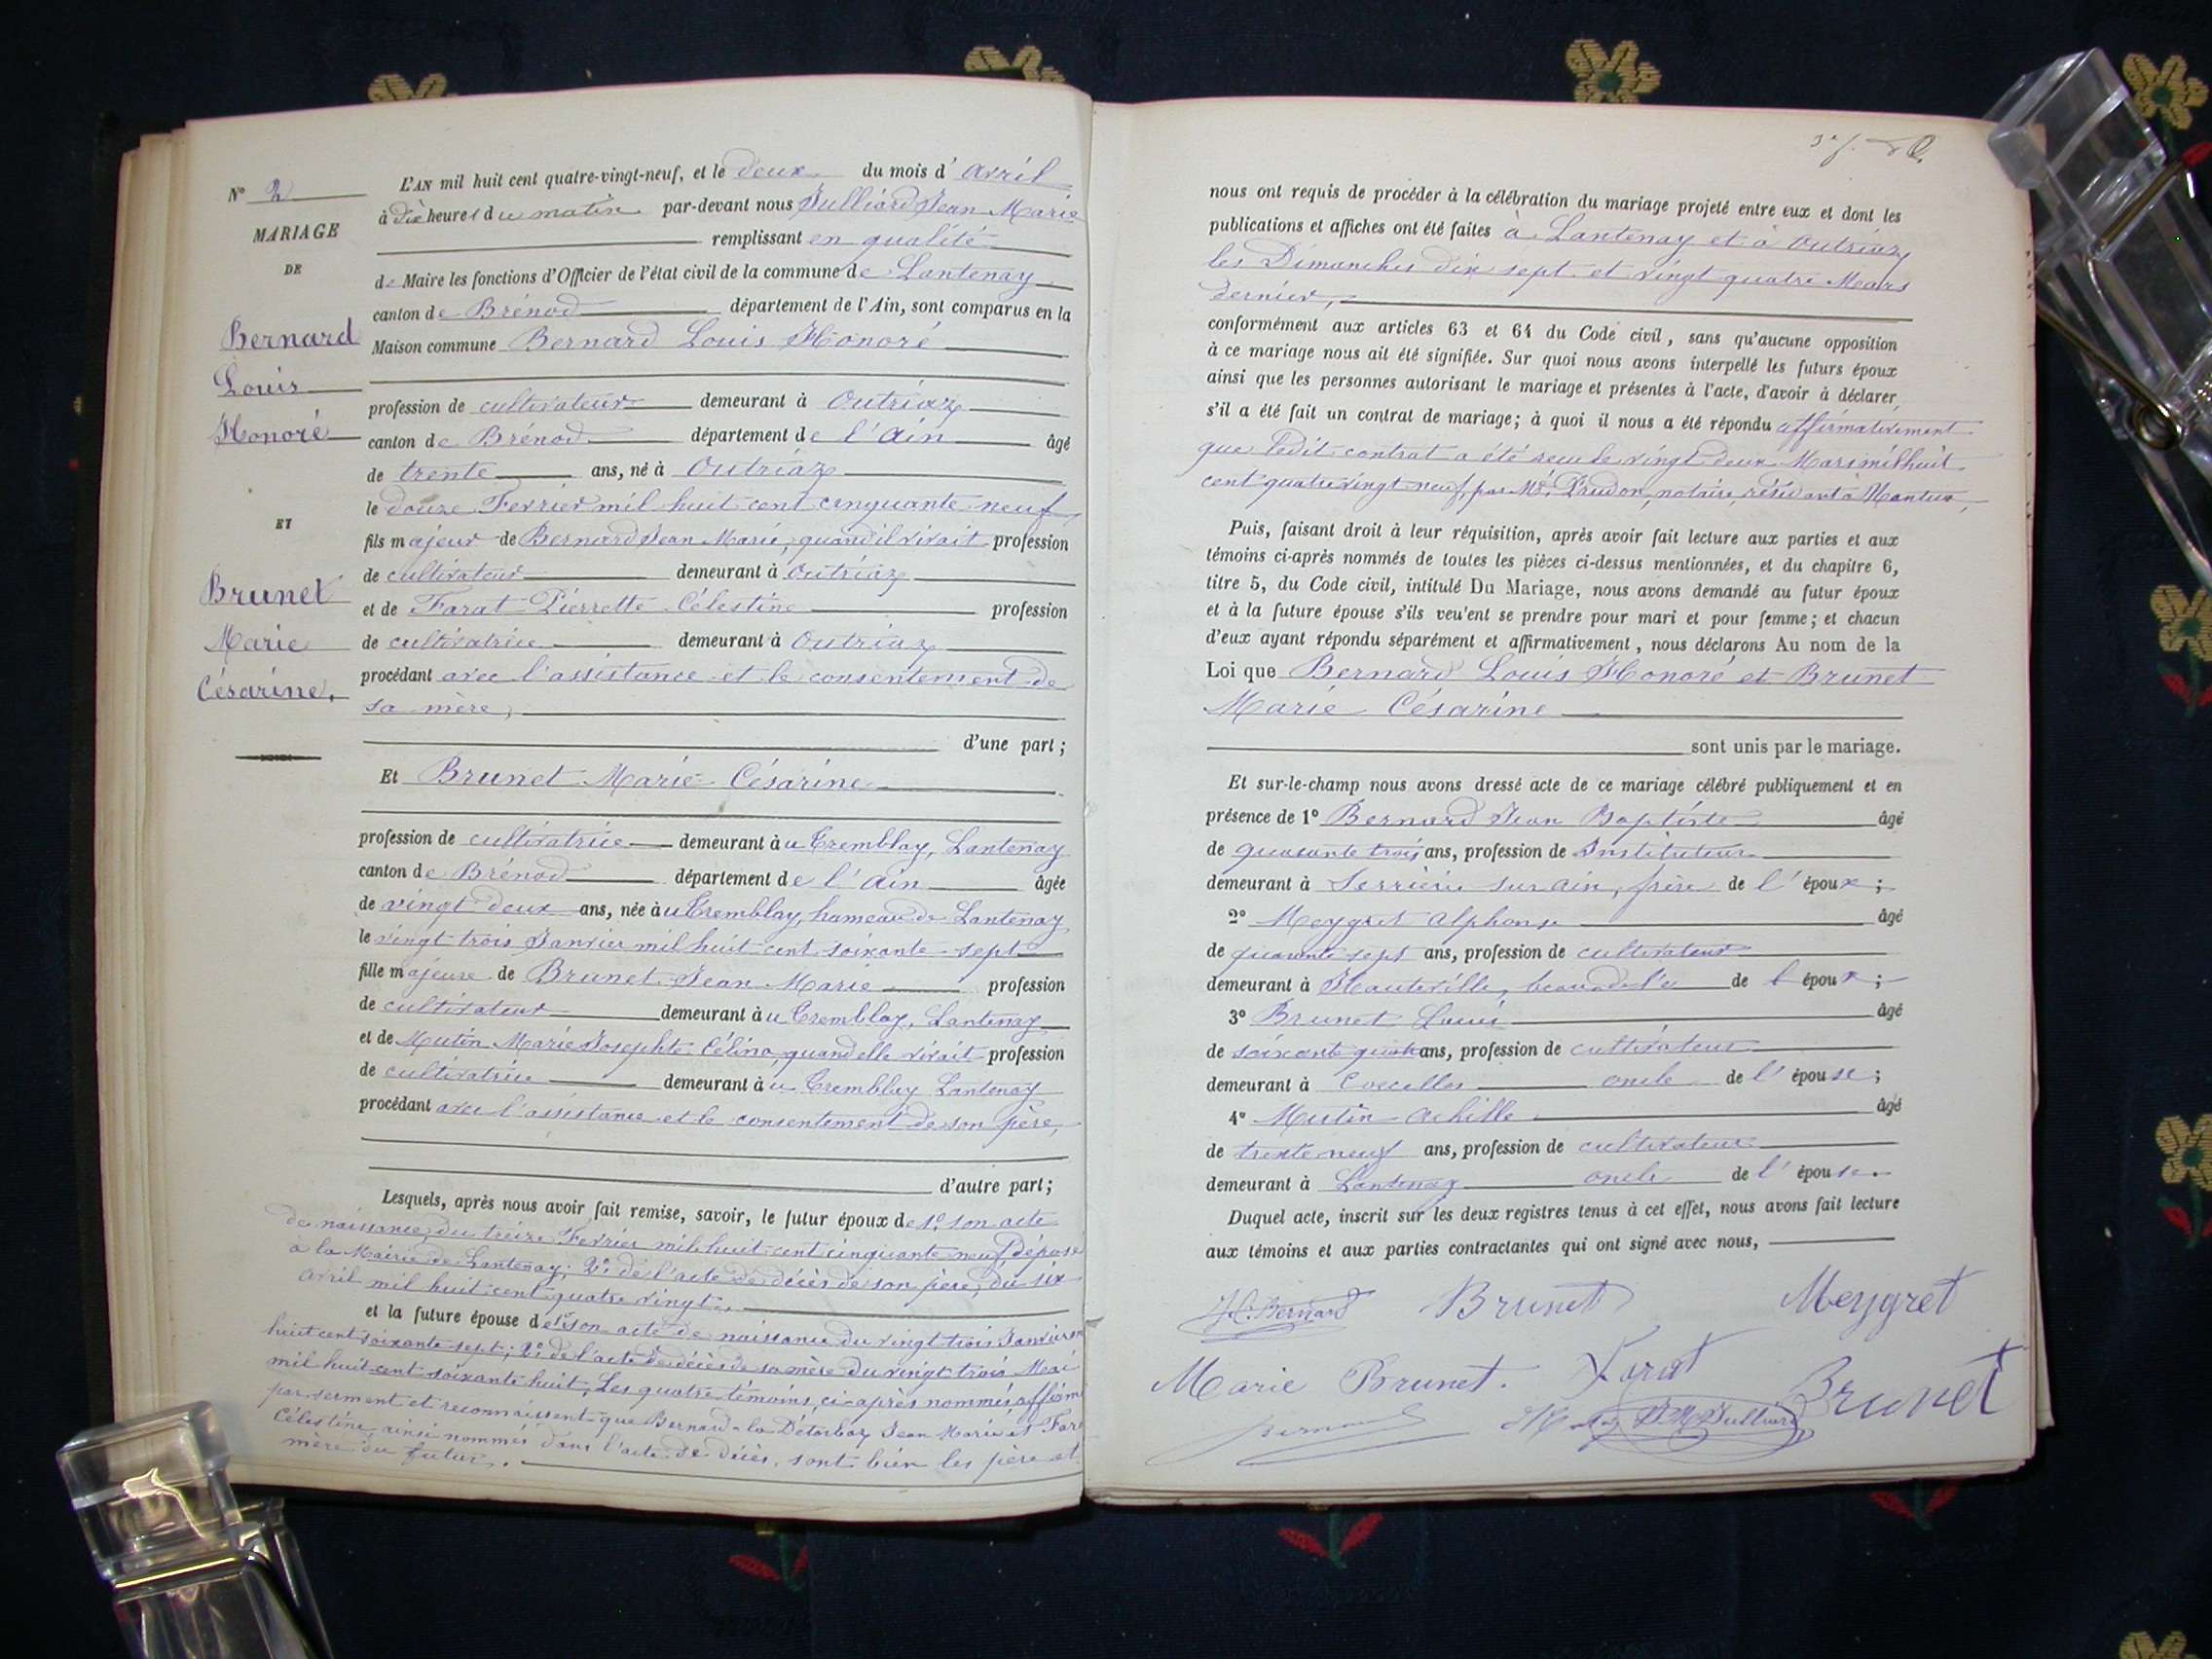 N° 2
MARIAGE
DE
Bernard
Louis
Honoré
ET
Brunet
Marie
Césarine.
L'AN mil huit cent quatre-vingt-neuf, et le deux du mois d' avril
à dix heures du matin par-devant nous Julliard Jean Marie
remplissant en qualité
de Maire les fonctions d'Officier de l'état civil de la commune de Lantenay
canton de Brénod département de l'Ain, sont comparus en la
Maison commune Bernard Louis Honoré
profession de cultivateur demeurant à Outriaz
canton de Brénod département de l'Ain âgé
de trente ans, né à Outriaz
le douze Fevrier mil huit cent cinquante neuf
fils majeur de Bernard Jean Marie, quand il vivait profession
de cultivateur demeurant à Outriaz
et de Farat Pierrette Célestine profession
de cultivatrice demeurant à Outriaz
procédant avec l'assistance et le consentement de
sa mère,
d'une part ;
Et Brunet Marie Césarine
profession de cultivatrice demeurant à u Tremblay, Lantenay
canton de Brénod département de l'Ain âgée
de vingt deux ans, née à u Tremblay, hameau de Lantenay
le vingt trois Janvier mil huit cent soixante sept
fille majeure de Brunet Jean Marie profession
de cultivateur demeurant à u Tremblay, Lantenay
et de Mutin Marie Josephte Célina, quand elle vivait profession
de cultivatrice demeurant à u Tremblay Lantenay
procédant avec l'assistance et le consentement de son père,
d'autre part ;
Lesquels, après nous avoir fait remise, savoir, le futur époux de 1° son acte
de naissance, du treize Fevrier mil huit cent cinquante neuf déposé
à la Mairie de Lantenay; 2° de l'acte de décès de son père, du six
avril mil huit cent quatre vingt,
et la future épouse de 1° son acte de naissance du vingt trois Janvier
huit cent soixante sept; 2° de l'acte de décès de sa mère du vingt trois Mai
mil huit cent soixante huit; Les quatre témoins, ci-après nommés, affirm
par serment et reconnaissent que Bernard-la Détorbaz Jean Marie et Fara
Célestine, ainsi nommés dans l'acte de décès, sont bien les père et
mère du futur.
nous ont requis de procéder à la célébration du mariage projeté entre eux et dont les
publications et affiches ont été faites à Lantenay et à Outriaz
les Dimanches dix sept et vingt quatre Mars
dernier,
conformément aux articles 63 et 64 du Code civil, sans qu'aucune opposition
à ce mariage nous ait été signifiée. Sur quoi nous avons interpellé les futurs époux
ainsi que les personnes autorisant le mariage et présentes à l'acte, d'avoir à déclarer
s'il a été fait un contrat de mariage; à quoi il nous a été répondu affirmativement
que ledit contrat a été reçu le vingt deux Mars mil huit
cent quatre vingt neuf, par Me. Prudon, notaire, résidant à Nantua,
Puis, faisant droit à leur réquisition, après avoir fait lecture aux parties et aux
témoins ci-après nommés de toutes les pièces ci-dessus mentionnées, et du chapitre 6,
titre 5, du Code civil, intitulé Du Mariage, nous avons demandé au futur époux
et à la future épouse s'ils veu'ent se prendre pour mari et pour femme; et chacun
d'eux ayant répondu séparément et affirmativement, nous déclarons Au nom de la
Loi que Bernard Louis Honoré et Brunet
Marie Césarine
sont unis par le mariage.
Et sur-le-champ nous avons dressé acte de ce mariage célébré publiquement et en
présence de 1° Bernard Jean Baptiste âgé
de quarante trois ans, profession de Instituteur
demeurant à Serrières sur Ain, frère de l'époux ;
2° Meygret Alphonse âgé
de quarante sept ans, profession de cultivateur
demeurant à Hauteville, de l'époux ;
3° Brunet Louis âgé
de soixante quatre ans, profession de cultivateur
demeurant à Corcelles oncle de l'épouse ;
4° Mutin Achille âgé
de trente neuf ans, profession de cultivateur
demeurant à Lantenay oncle de l'épouse.
Duquel acte, inscrit sur les deux registres tenus à cet effet, nous avons fait lecture
aux témoins et aux parties contractantes qui ont signé avec nous,
Bernard Brunet Meygret
Marie Brunet. Farat Brunet
Bernard JM Julliard